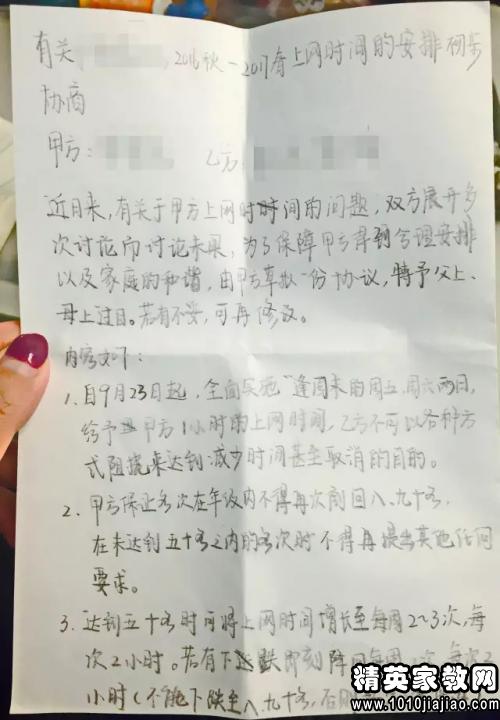 有关 ,2016秋-2017春上网时间的安排初步
协商
甲方: 乙方:
近日来,有关于甲方上网时时间的问题,双方展开多
次讨论而讨论未果,为了保障甲方得到合理安排
以及家庭的和谐,由甲方草拟一份协议,特予父上、
母上过目。若有不妥,可再修改。
内容如下:
1.自9月23日起,全面实施"逢周末的周五、周六两日,
给予甲方1小时的上网时间,乙方不可以各种方
式阻挠来达到减少时间甚至取消的目的。
2.甲方保证名次在年级内不得再次倒回八、九十名,
在未达到五十名之内的名次时不得再提出其他任何
要求。
3.达到五十名时可将上网时间增长至每周2~3次,每
次2小时。若有下跌即刻降回每周 次,每次2
小时(不能下跌至八、九十名,否则
精英家教网
www.1010jiajiao.com